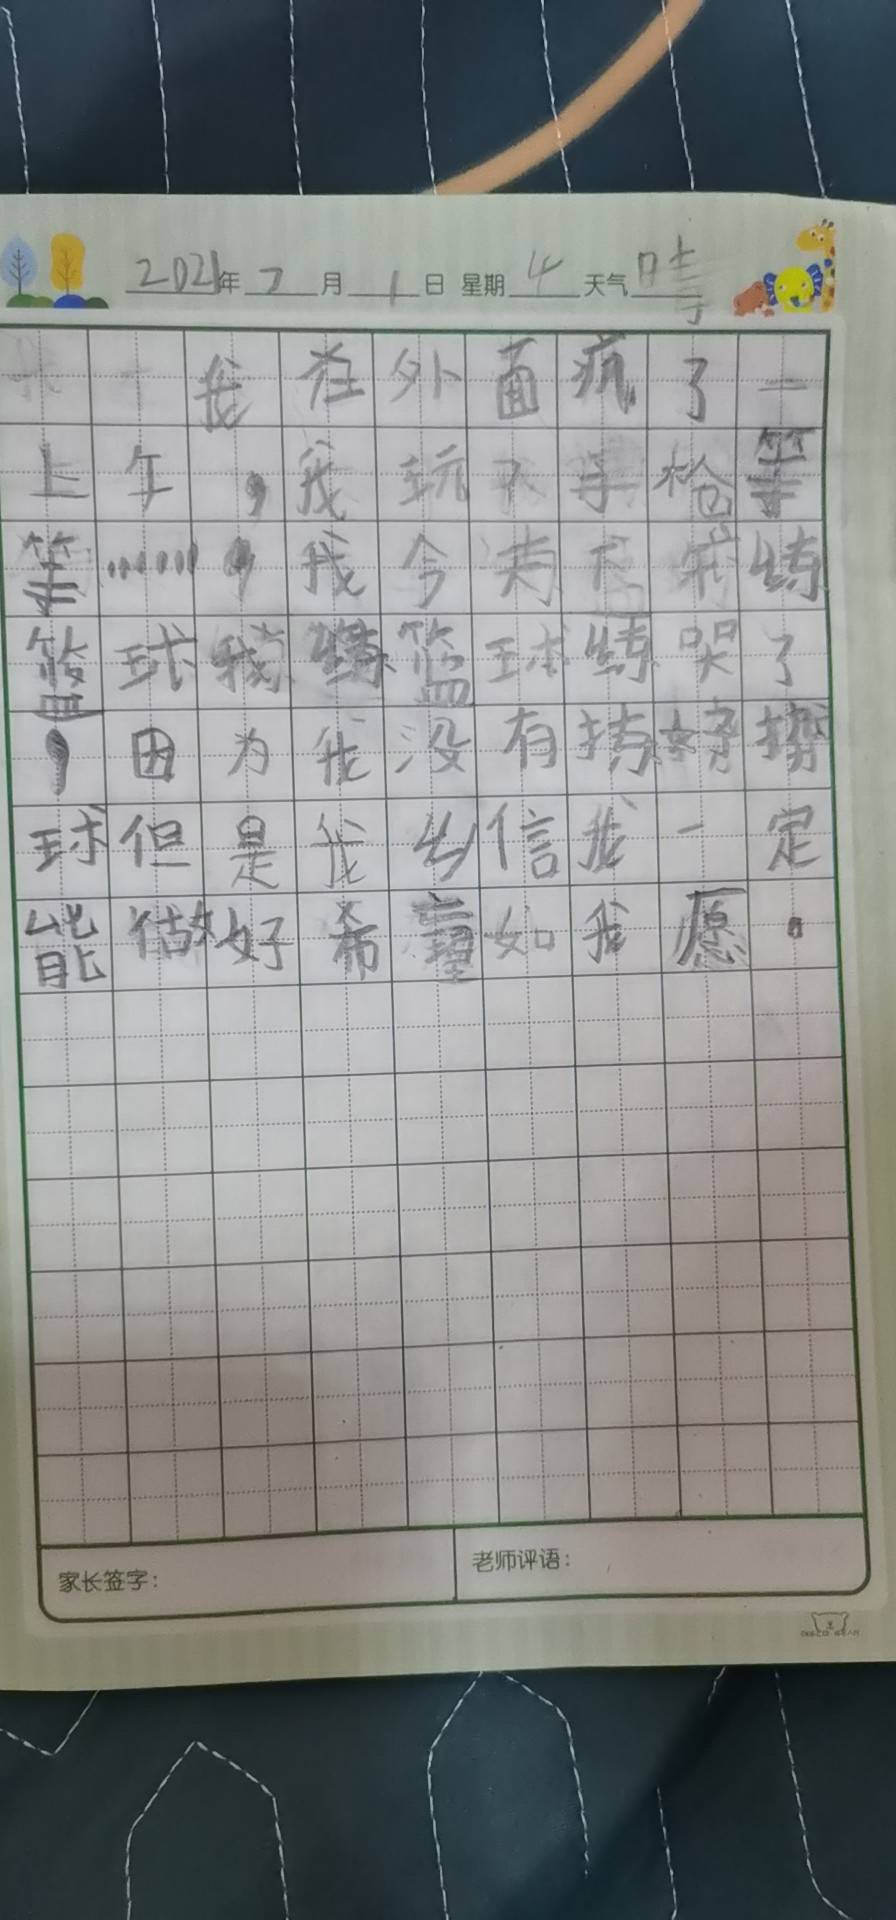 2021年7月1日 星期4 天气晴
我在外面疯了一
上午，我玩了手枪等
等……，我今天练
篮球我练篮球练哭了
，因为我没有
球但是我信我一定
能做好希望如我愿。
家长签字：
老师评语：